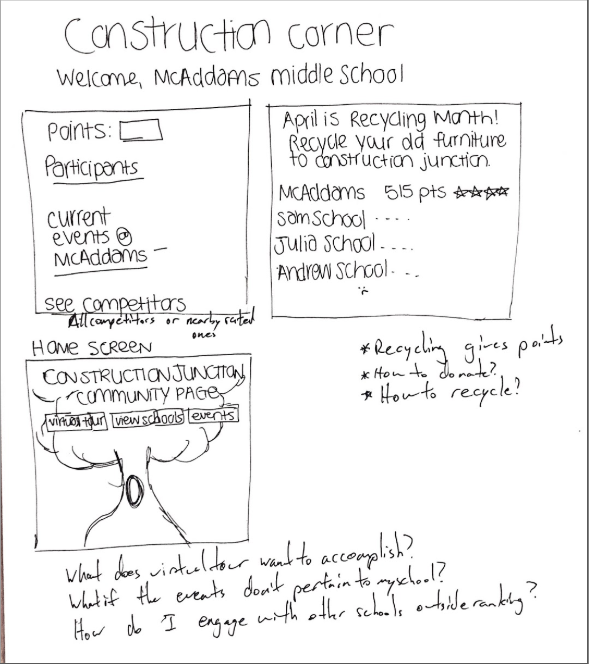 Construction corner
Welcome, McAddams middle school
Points:
Participants
current
events @
McAddams
see competitors
All competitors or nearby rated
ones
April is Recycling Month!
Recycle your old furniture
to construction junction.
McAddams 515 pts ☆☆☆☆
Sam School ....
Julia School ....
Andrew School ...
HOME SCREEN
CONSTRUCTION JUNCTION
COMMUNITY PAGE
virtual tour view schools events
* Recycling gives points
* How to donate?
* How to recycle?
What does virtual tour want to accomplish?
What if the events don't pertain to my school?
How do I engage with other schools outside ranking?